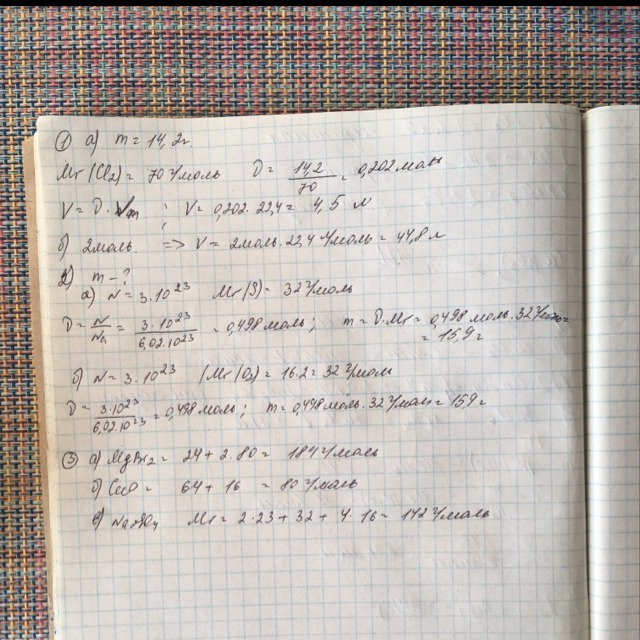 ① а) m = 14,2г
Mr(Cl2) = 70 г/моль ν = 14,2/70 = 0,202 моль
V = ν · Vm ; V = 0,202 · 22,4 = 4,5 л
б) 2 моль. => V = 2 моль · 22,4 л/моль = 44,8 л
2) m - ?
а) N = 3 · 10^23 Mr(S) = 32 г/моль
ν = N/NA = 3 · 10^23/6,02 · 10^23 = 0,498 моль ; m = ν · Mr = 0,498 моль · 32 г/моль =
= 15,9 г
б) N = 3 · 10^23 Mr(O2) = 16 · 2 = 32 г/моль
ν = 3 · 10^23/6,02 · 10^23 = 0,498 моль ; m = 0,498 моль · 32 г/моль = 15,9 г
③ а) MgBr2 = 24 + 2 · 80 = 184 г/моль
б) CuO = 64 + 16 = 80 г/моль
в) Na2SO4 Mr = 2 · 23 + 32 + 4 · 16 = 142 г/моль